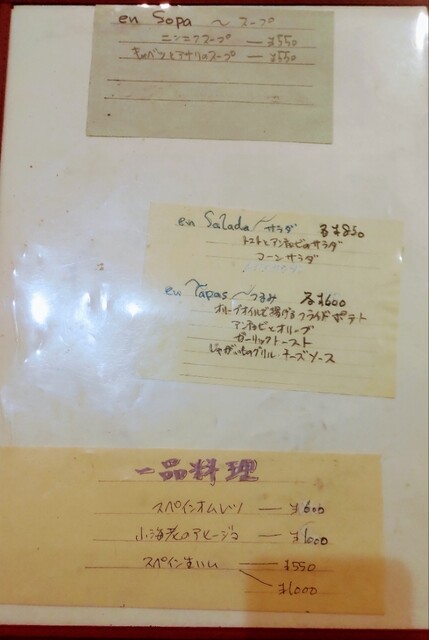 en Sopa ～ スープ
ニンニクスープ — ¥550
キャベツとアサリのスープ — ¥550
en Salada ～ サラダ 各¥850
トマトとアンチョビのサラダ
コーンサラダ
en Tapas ～ つまみ 各¥600
オリーブオイルで揚げるフライドポテト
アンチョビとオリーブ
ガーリックトースト
じゃがいものグリル チーズソース
一品料理
スペインオムレツ — ¥600
小海老のアヒージョ — ¥1000
スペイン生ハム — ¥550
¥1000